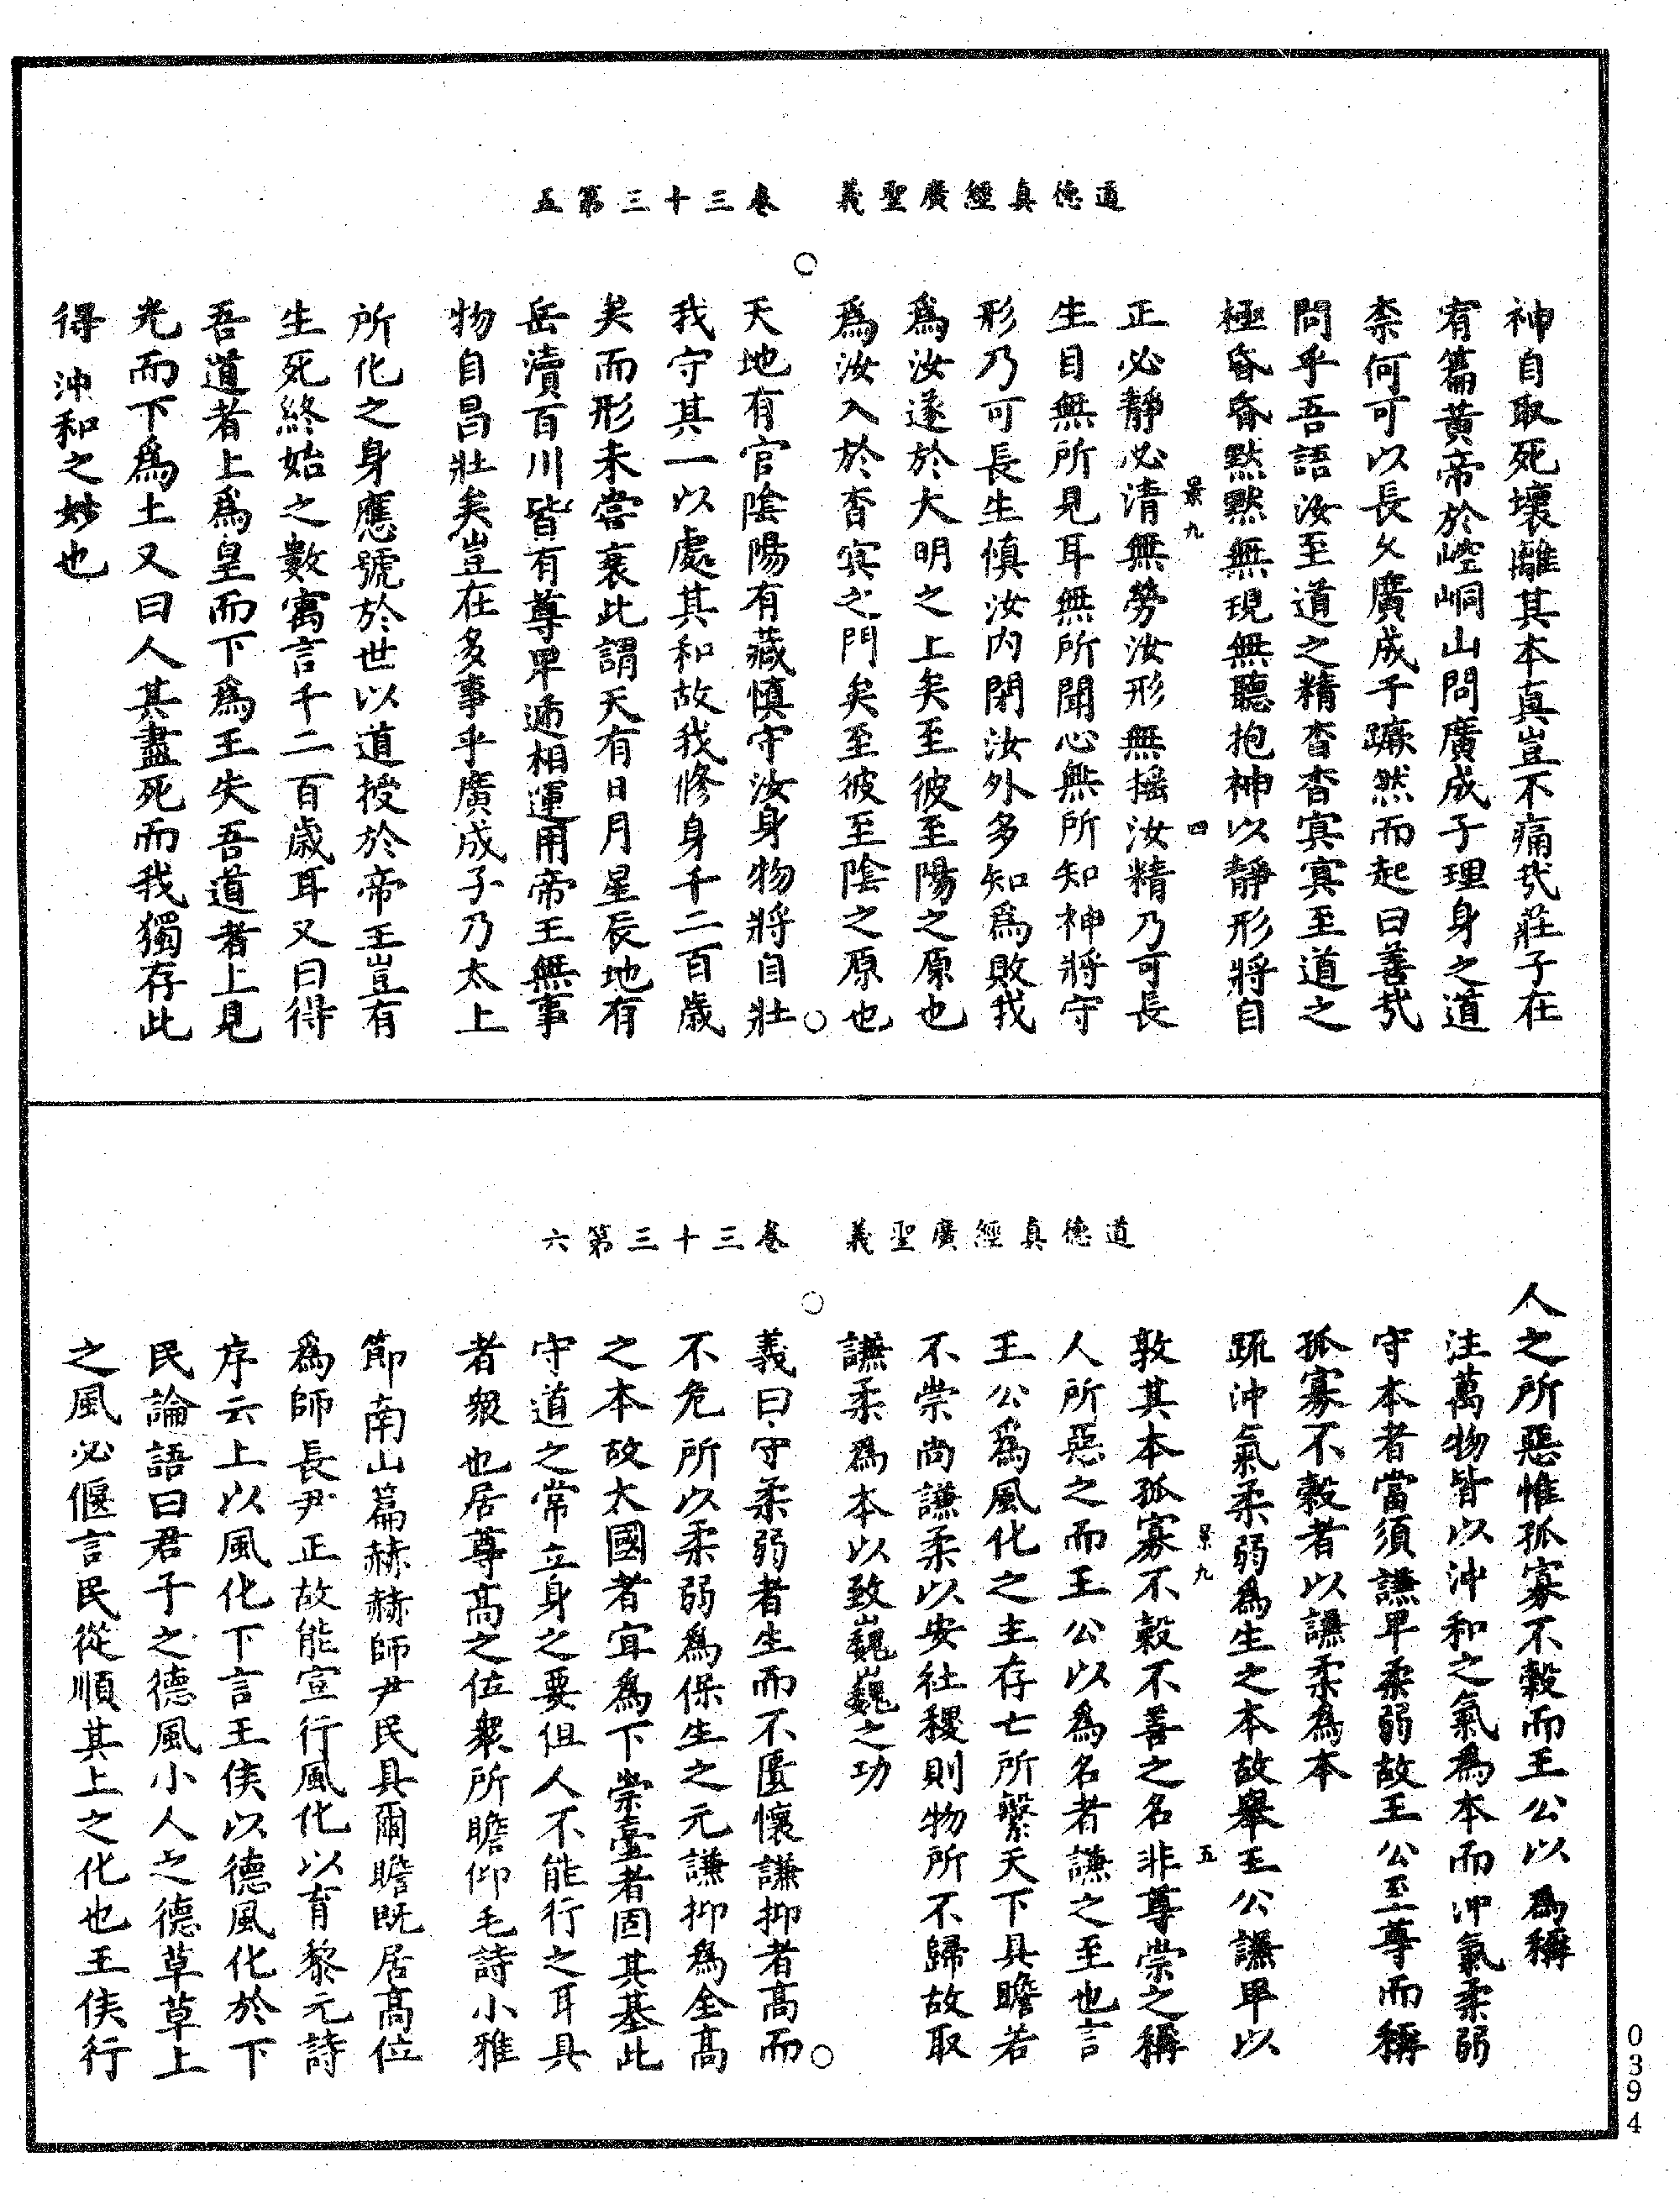 道德真經廣聖義　卷三十三第五
神自取死壞離其本真豈不痛哉莊子在
宥篇黃帝於崆峒山問廣成子理身之道
柰何可以長久廣成子蹶然而起曰善哉
問乎吾語汝至道之精杳杳寞寞至道之
極昏昏默默無現無聽抱神以靜形將自
景九　四
正必靜必清無勞汝形無搖汝精乃可長
生目無所見耳無所聞心無所知神將守
形乃可長生慎汝內閉汝外多知為敗我
為汝遂於大明之上矣至彼至陽之原也
為汝入於杳寞之門矣至彼至陰之原也
天地有官陰陽有藏慎守汝身物將自壯
我守其一以處其和故我修身千二百歲
矣而形未嘗衰此謂天有日月星辰地有
岳瀆百川皆有尊卑遞相運用帝王無事
物自昌壯矣豈在多事乎廣成子乃太上
所化之身應號於世以道授於帝王豈有
生死終始之數寓言千二百歲耳又曰得
吾道者上為皇而下為王失吾道者上見
光而下為土又曰人其盡死而我獨存此
得沖和之妙也
道德真經廣聖義　卷三十三第六
人之所惡惟孤寡不穀而王公以為稱
注萬物皆以沖和之氣為本而沖氣柔弱
守本者當須謙卑柔弱故王公至尊而稱
孤寡不穀者以謙柔為本
疏沖氣柔弱為生之本故舉王公謙卑以
景九　五
敦其本孤寡不穀不善之名非尊崇之稱
人所惡之而王公以為名者謙之至也言
王公為風化之主存亡所繫天下具瞻若
不崇尚謙柔以安社稷則物所不歸故取
謙柔為本以致巍巍之功
義曰守柔弱者生而不匱懷謙抑者高而
不危所以柔弱為保生之元謙抑為全高
之本故大國者宜為下崇臺者固其基此
守道之常立身之要但人不能行之耳具
者眾也居尊高之位眾所瞻仰毛詩小雅
節南山篇赫赫師尹民具爾瞻既居高位
為師長尹正故能宣行風化以育黎元詩
序云上以風化下言王侯以德風化於下
民論語曰君子之德風小人之德草草上
之風必偃言民從順其上之化也王侯行
0394